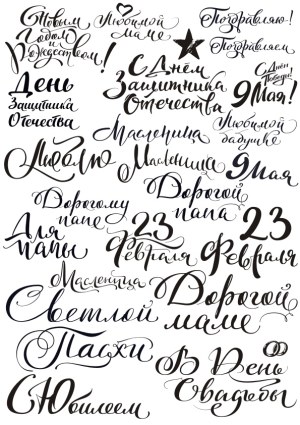 С Новым
Годом
и
Рождеством!
Любимой
маме
Поздравляю!
Поздравляем
День
Защитника
Отечества
С Днём
Защитника
Отечества
С Днём
Победы!
9 Мая!
Масленица
Любимой
бабушке
Люблю
Масленица
9 Мая
Дорогому
папе
Дорогой
папа
Для
папы
23
Февраля
23
Февраля
Масленица
Дорогой
маме
Светлой
Пасхи
В День
Свадьбы
С Юбилеем